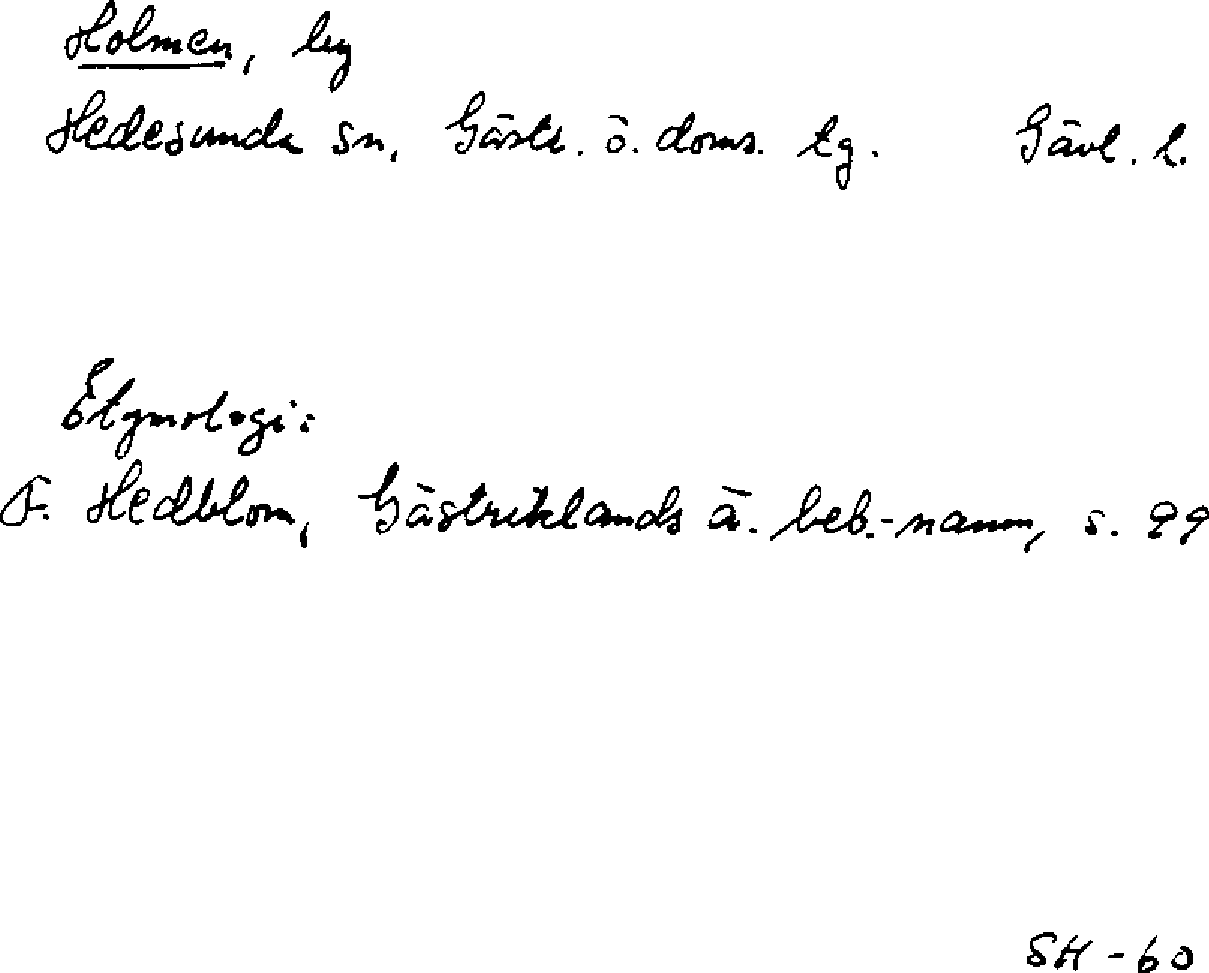 Holmen, by
Hedesunda sn, Gästr. ö. doms. tg. Gävl. l.
Etymologi:
F. Hedblom, Gästriklands ä. beb.-namn, s. 99
SH-60